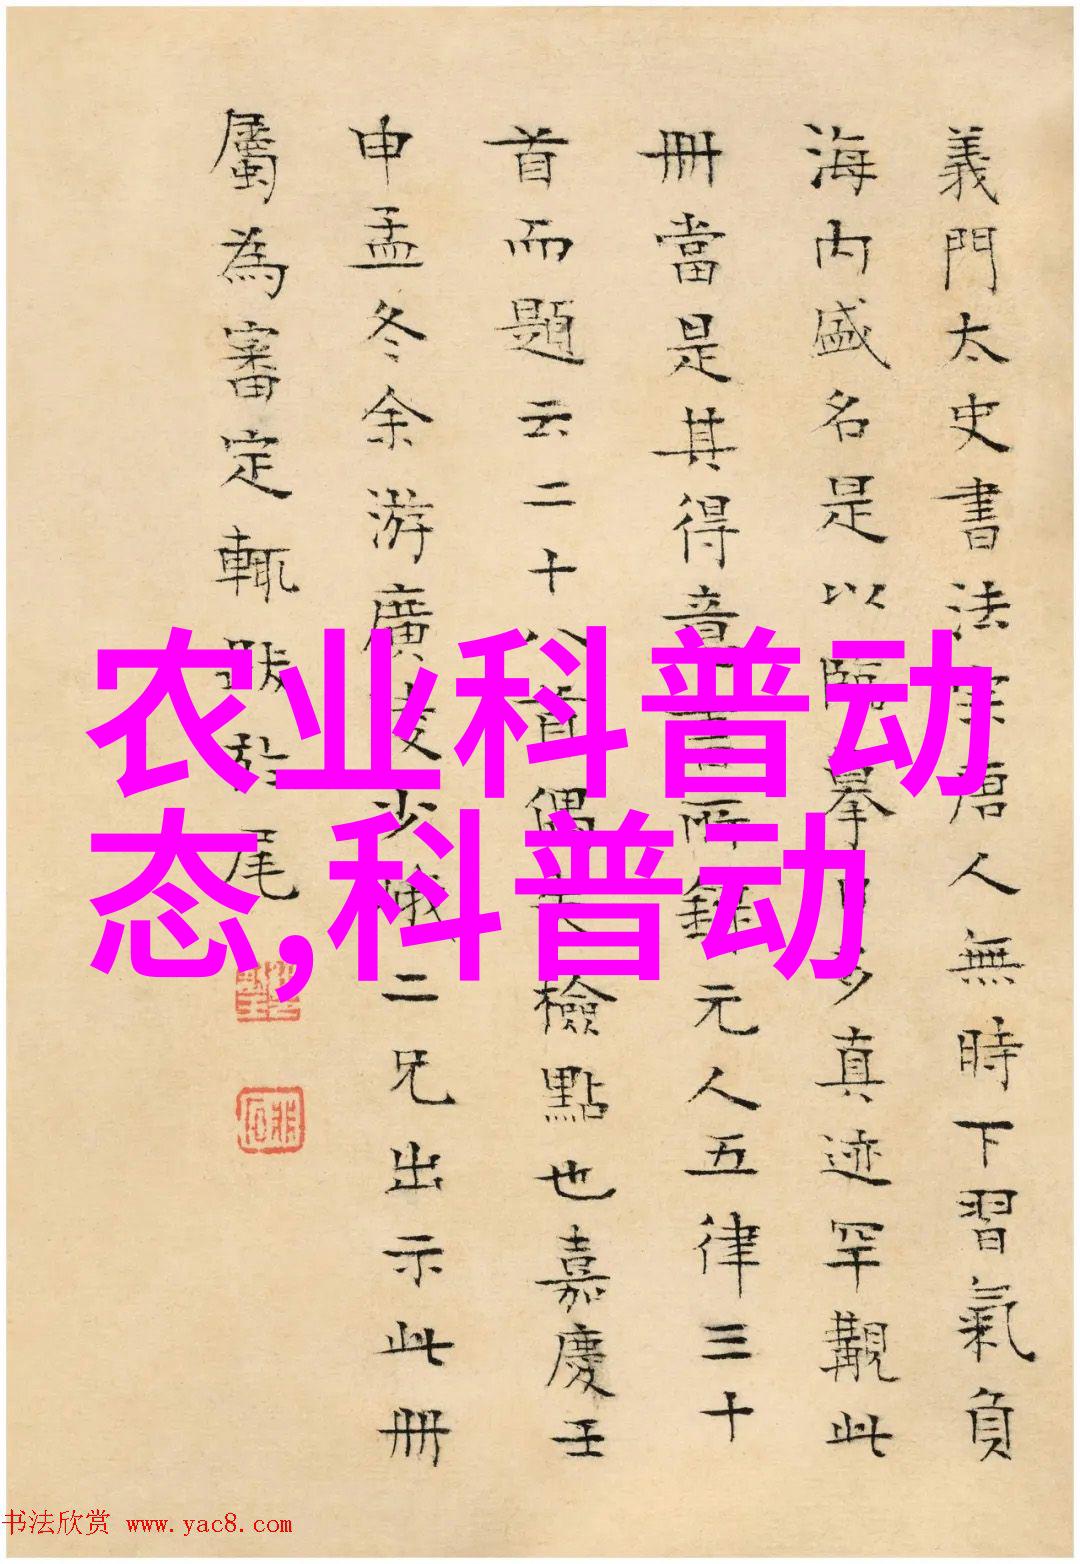 義門太史書法宗唐人無時下習氣負
海内盛名是以臨摹日多真迹罕覯此
冊當是其得意書所錄元人五律三十
首而題云二十八首偶失檢點也嘉慶壬
申孟冬余游廣陵少峨二兄出示此冊
屬為審定輒跋於尾
农业科普动
态,科普动
书法欣赏 www.yac8.com